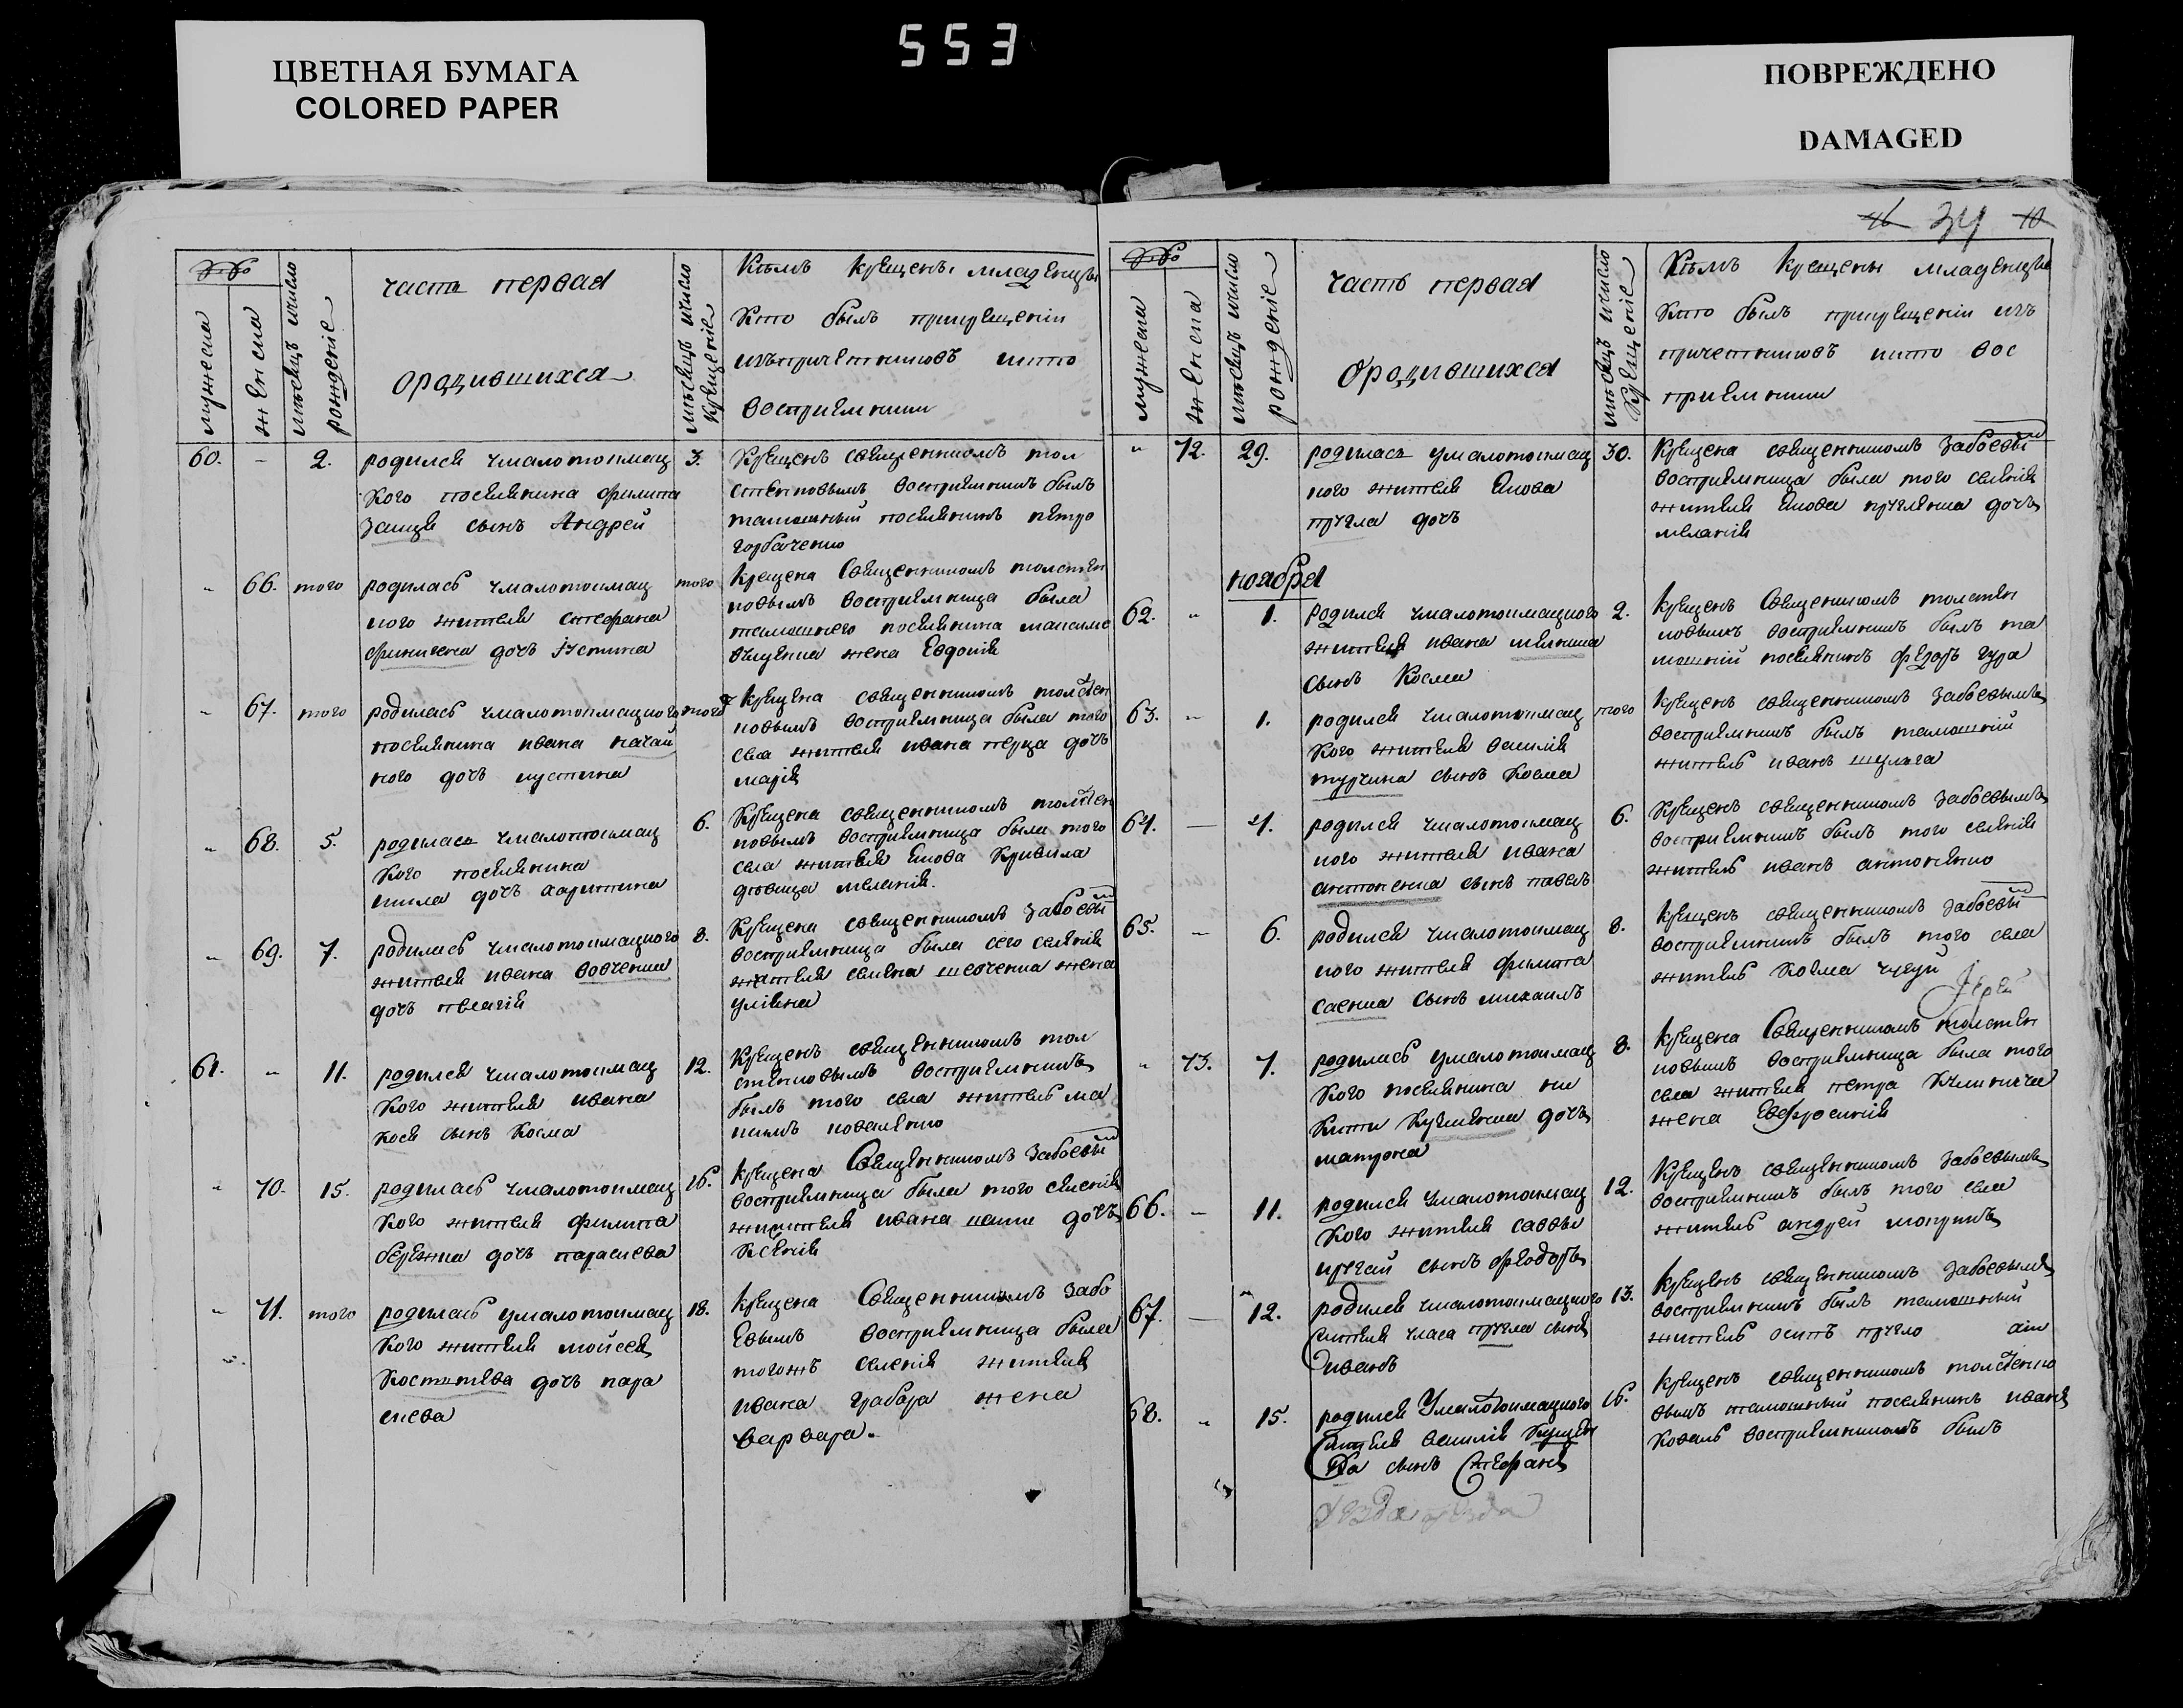 ЦВЕТНАЯ БУМАГА
COLORED PAPER
553
ПОВРЕЖДЕНО
DAMAGED
34
мужеска
женска
месяцъ ичисло
рожденіе
часть первая
ородившихся
месяцъ ичисло
крещеніе
Кемъ крещены младенцы
Кто былъ прикрещеніи
изъпричетниковъ икто
восприемники
60. - 2.
родился умалотокмац
кого поселянина филипа
заица сынъ Андрей
3.
Крещенъ священникомъ тол
стенковымъ восприемникъ былъ
тамошный поселянинъ петро
горбаченко
" 66. того
родилась умалотокмац
кого жителя стефана
дочь Іустина
того
Крещена Священникомъ толстен
ковымъ восприемница была
тамошнего поселянина максима
жена Евдокія
" 67. того
родилась умалотокмацкого
поселянина ивана качай
кого дочь иустина
того
Крещена священникомъ толстен
ковымъ восприемница была того
села жителя ивана перца дочь
марія
" 68. 5.
родилась умалотокмац
кого поселянина
дочь харитина
6.
Крещена священникомъ толстен
ковымъ восприемница была того
села жителя Якова Кривила
девица меланія.
" 69. 7.
родилась умалотокмацкого
жителя ивана вовченка
дочь пелагія
8.
Крещена священникомъ забоевы
восприемница была сего селенія
жителя семена шевченка жена
уліяна
61. " 11.
родился умалотокмац
кого жителя ивана
кося сынъ Косма
12.
Крещенъ священникомъ тол
стенковымъ восприемникъ
былъ того села житель ма
ксимъ коваленко
" 70. 15.
родилась умалотокмац
кого жителя филипа
бережка дочь параскева
16.
Крещена Священникомъ Забоевы
восприемница была того селенія
жителя ивана дочь
Ксенія
" 71. того
родилась умалотокмац
кого жителя мойсея
дочь пара
скева
18.
Крещена Священникомъ Забо
евымъ восприемница была
тогожъ селенія жителя
ивана грабара жена
варвара.
мужеска
женска
месяцъ ичисло
рожденіе
часть первая
ородившихся
месяцъ ичисло
Крещеніе
Кемъ крещены младенцы
Кто былъ прикрещеніи изъ
причетниковъ икто вос
приемники
" 72. 29.
родилась умалотокмац
кого жителя Якова
пугла дочь
30.
Крещена священникомъ Забоевы
восприемница была того селенія
жителя Якова дочь
меланія
ноября
62. " 1.
родился умалотокмацкого
жителя ивана мелника
сынъ Косма
2.
Крещенъ Священникомъ толстен
ковымъ восприемникъ былъ та
мошній поселянинъ федоръ гура
63. " 1.
родился умалотокмац
кого жителя василія
турчина сынъ Косма
того
Крещенъ священникомъ Забоевымъ
восприемникъ былъ тамошній
житель иванъ шулига
64. — 4.
родился умалотокмац
кого жителя ивана
антоненка сынъ павелъ
6.
Крещенъ священникомъ Забоевымъ
восприемникъ былъ того селенія
житель иванъ антоненко
65. — 6.
родился умалотокмац
кого жителя филипа
саенка сынъ михаилъ
8.
Крещенъ священникомъ Забоевы
восприемникъ былъ того села
житель Косма чугуй
Іерей
" 73. 7.
родилась умалотокмац
кого поселянина ни
киты дочь
матрона
8.
Крещена Священникомъ толстен
ковымъ восприемница была того
села жителя петра
жена Евфросинія
66. — 11.
родился умалотокмац
кого жителя саввы
сынъ Феодоръ
12.
Крещенъ священникомъ Забоевымъ
восприемникъ былъ того села
житель андрей
67. — 12.
родился умалотокмацкого
жителя пугла сынъ
иванъ
13.
Крещенъ священникомъ Забоевымъ
восприемникъ былъ тамошный
житель осипъ пугло
68. " 15.
родился Умалотокмацкого
жителя василія Куцен
ка сынъ Стефанъ
16.
Крещенъ священникомъ толстенко
вымъ тамошный поселянинъ иванъ
Коваль восприемникомъ былъ